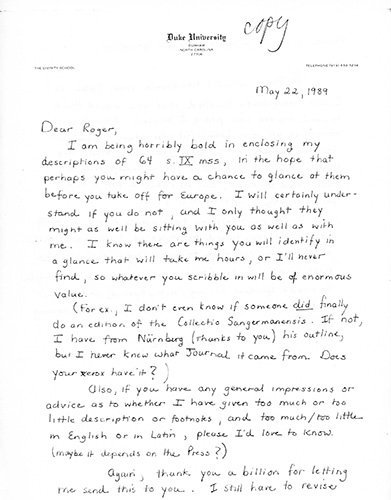 copy
Duke University
DURHAM
NORTH CAROLINA
27706
THE DIVINITY SCHOOL
May 22, 1989
Dear Roger,
I am being horribly bold in enclosing my
descriptions of 64 s. IX mss, in the hope that
perhaps you might have a chance to glance at them
before you take off for Europe. I will certainly under-
stand if you do not, and I only thought they
might as well be sitting with you as well as with
me. I know there are things you will identify in
a glance that will take me hours, or I'll never
find, so whatever you scribble in will be of enormous
value.
(For ex., I don't even know if someone did finally
do an edition of the Collectio Sangermanensis. If not,
I have from Nürnberg (thanks to you) his outline,
but I never knew what Journal it came from. Does
your xerox have it?)
Also, if you have any general impressions or
advice as to whether I have given too much or too
little description or footnotes, and too much/too little
in English or in Latin, please I'd love to know.
(maybe it depends on the Press?)
Again, thank you a billion for letting
me send this to you. I still have to revise